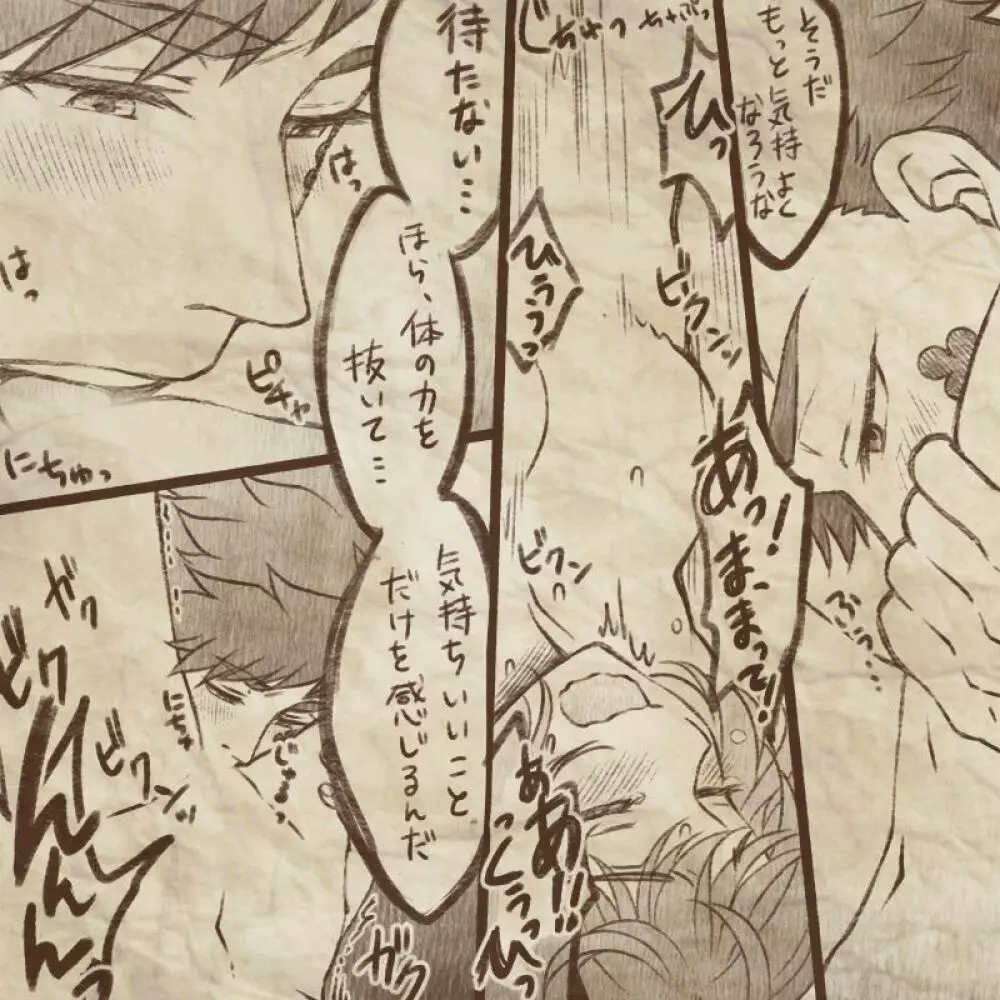 そうだ
もっと気持よく
なろうな
ひっ
ビクンッ
あっ!
まっまって!
ふっ…
ひうっっ
ビクンッ
ああ
あ!!
待たない…
ほら、体の力を
抜いて…
気持ちいいこと
だけを感じるんだ
はっ
はっ
ピチャ
にちゅっ
ガク
ビク
ビクンッ
にちゅ
んんんんっ
ガク